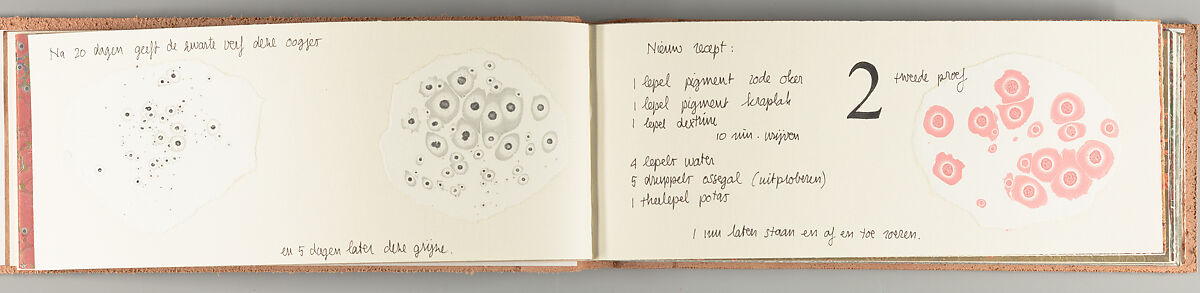 Na 20 dagen geeft de zwarte verf deze oogjes
en 5 dagen later deze grijze.
Nieuw recept:
1 lepel pigment rode oker
1 lepel pigment kraplak
1 lepel dextrine
10 min. wrijven
4 lepels water
5 druppels ossegal (uitproberen)
1 theelepel potas
1 uur laten staan en af en toe roeren.
2
tweede proef